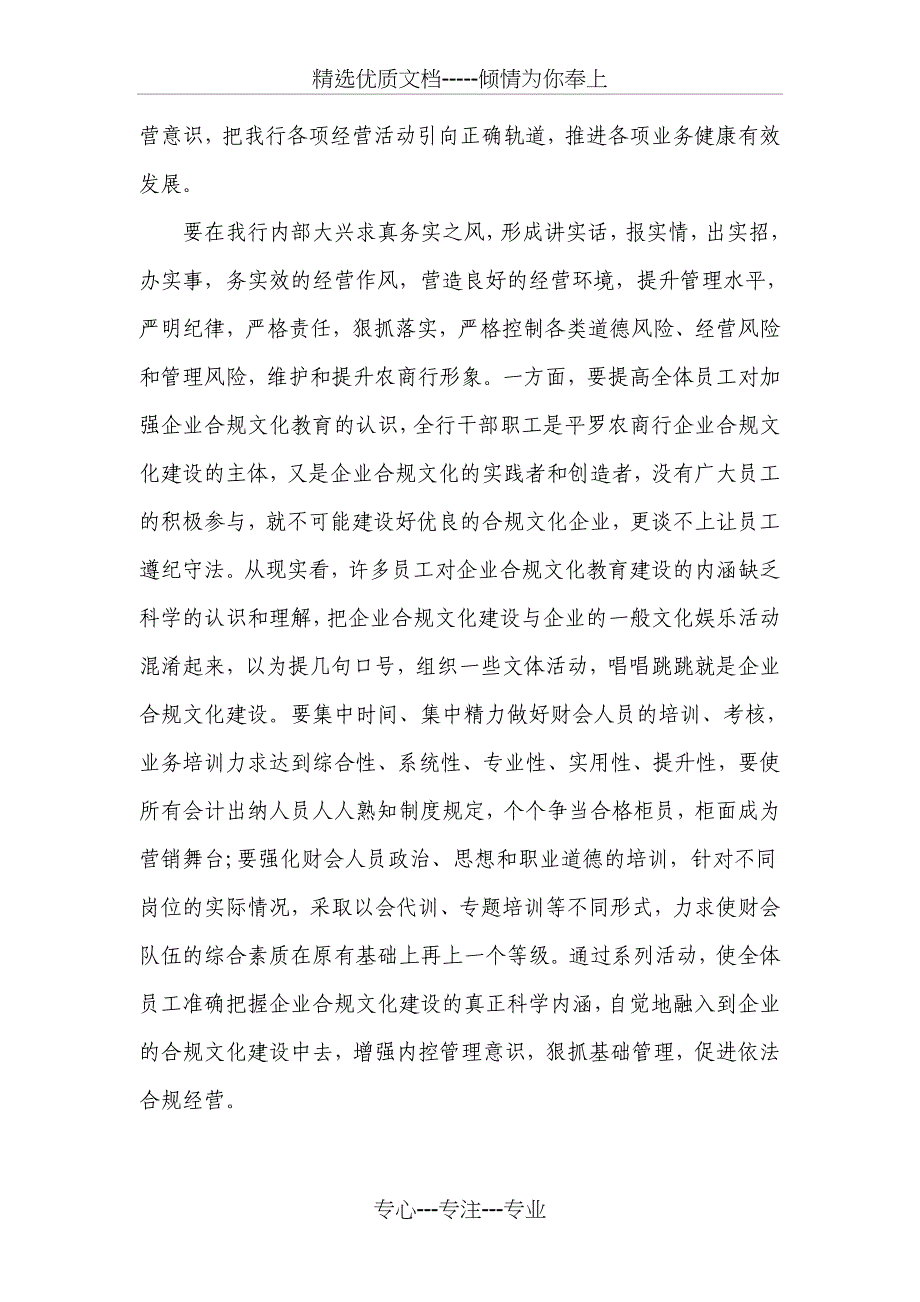 精选优质文档-----倾情为你奉上
营意识，把我行各项经营活动引向正确轨道，推进各项业务健康有效
发展。
要在我行内部大兴求真务实之风，形成讲实话，报实情，出实招，
办实事，务实效的经营作风，营造良好的经营环境，提升管理水平，
严明纪律，严格责任，狠抓落实，严格控制各类道德风险、经营风险
和管理风险，维护和提升农商行形象。一方面，要提高全体员工对加
强企业合规文化教育的认识，全行干部职工是平罗农商行企业合规文
化建设的主体，又是企业合规文化的实践者和创造者，没有广大员工
的积极参与，就不可能建设好优良的合规文化企业，更谈不上让员工
遵纪守法。从现实看，许多员工对企业合规文化教育建设的内涵缺乏
科学的认识和理解，把企业合规文化建设与企业的一般文化娱乐活动
混淆起来，以为提几句口号，组织一些文体活动，唱唱跳跳就是企业
合规文化建设。要集中时间、集中精力做好财会人员的培训、考核，
业务培训力求达到综合性、系统性、专业性、实用性、提升性，要使
所有会计出纳人员人人熟知制度规定，个个争当合格柜员，柜面成为
营销舞台;要强化财会人员政治、思想和职业道德的培训，针对不同
岗位的实际情况，采取以会代训、专题培训等不同形式，力求使财会
队伍的综合素质在原有基础上再上一个等级。通过系列活动，使全体
员工准确把握企业合规文化建设的真正科学内涵，自觉地融入到企业
的合规文化建设中去，增强内控管理意识，狠抓基础管理，促进依法
合规经营。
专心---专注---专业